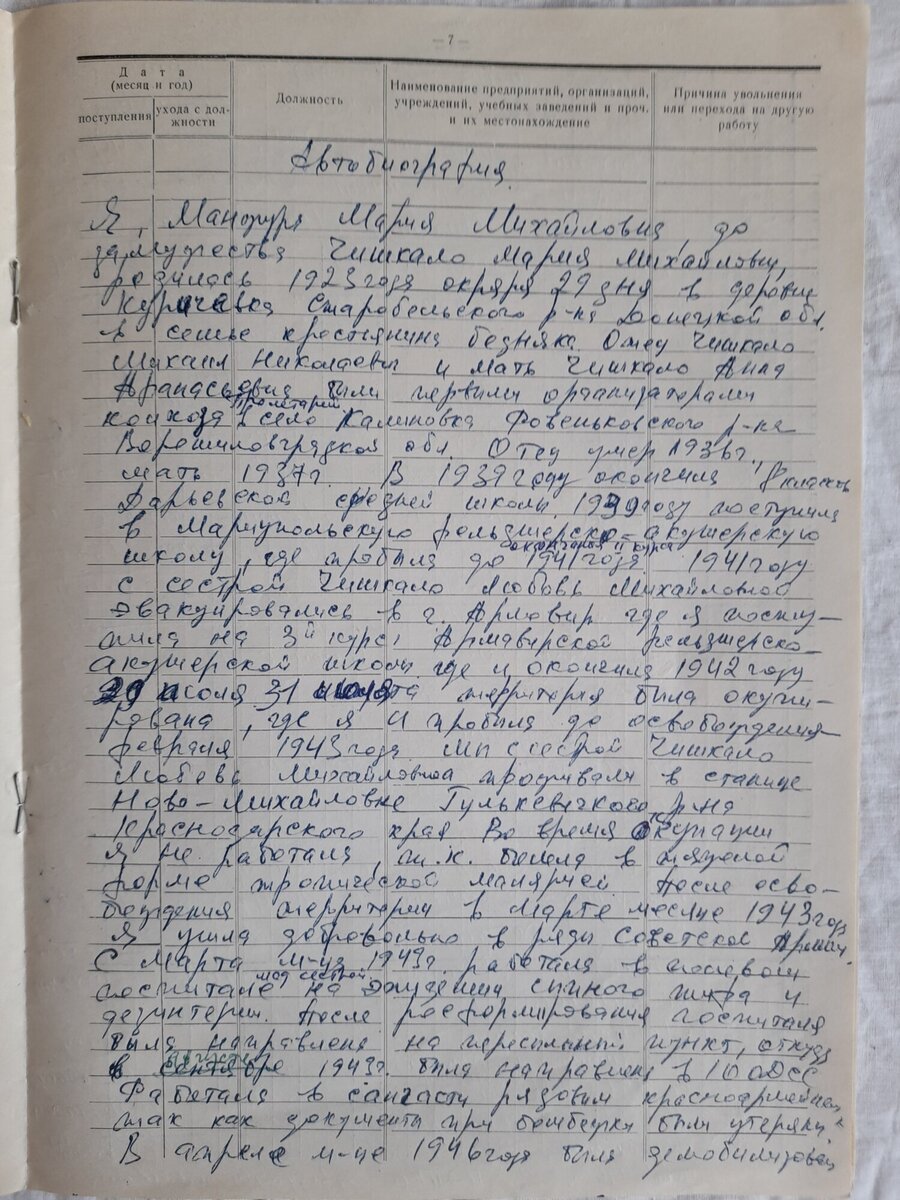 — 7 —
Дата
(месяц и год)
поступления
ухода с дол-
жности
Должность
Наименование предприятий, организаций,
учреждений, учебных заведений и проч.
и их местонахождение
Причина увольнения
или перехода на другую
работу
Автобиография.
Я, Мария Михайловна, до
замужества Чишкало Мария Михайловна,
родилась 1923 года 29 дня в деревне
Старобельского р-на Донецкой обл.
в семье крестьянина бедняка. Отец Чишкало
Михаил Николаевич и мать Чишкало Анна
Афанасьевна были первыми организаторами
колхоза "Пролетарий" село Калиновка Ровеньковского р-на
Ворошиловградской обл. Отец умер 1936 г.
мать 1937 г. В 1939 году окончила 8 классов
Дарьевской средней школы. 1939 году поступила
в Мариупольскую фельдшерско-акушерскую
школу, где пробыла до окончания II курса 1941 года. 1941 году
с сестрой Чишкало Любовь Михайловной
эвакуировались в г. Армавир где я посту-
пила на 3й курс Армавирской фельдшерско-
акушерской школы где и окончила 1942 году
31 территория была оккупи-
рована, где я и пробыла до освобождения
февраля 1943 года мы с сестрой Чишкало
Любовь Михайловна проживали в станице
Ново-Михайловке Гулькевичского р-на
Краснодарского края Во время окупации
Я не работала, т.к. болела в тяжелой
форме тропической малярией. После осво-
бождения территории в Марте месяце 1943 году
Я ушла добровольно в ряды Советской Армии.
С Марта м-ца 1943 г. работала в полевом
госпитале мед сестрой на эпидемии сыпного тифа и
дезинтерии. После расформирования госпиталя
была направлена на пересыльный пункт, откуда
в августе сентябре 1943 г. была направлена в 10
Работала в санчасти рядовым красноармейцем
так как документы при бомбежке были утеряны.
В апреле м-це 1946 года была демобилизован